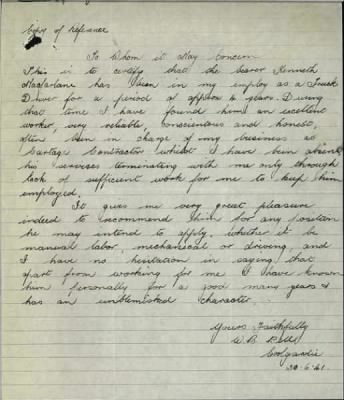 Copy of Reference
To Whom it May Concern
This is to certify that the bearer Kenneth
MacFarlane has been in my employ as a Truck
Driver for a period of approx years. During
that time I have found him an excellent
worker, very reliable conscientious and honest,
been in charge of my business as
Cartage Contractor whilst I have been absent,
his services terminating with me only through
lack of sufficient work for me to keep him
employed.
It gives me very great pleasure
indeed to recommend him for any position
he may intend to apply, whether it be
manual labor, mechanical or driving, and
I have no hesitation in saying that
apart from working for me I have known
him personally for a good many years &
has an unblemished character.
Yours Faithfully
W. B.
Coolgardie
6.41.